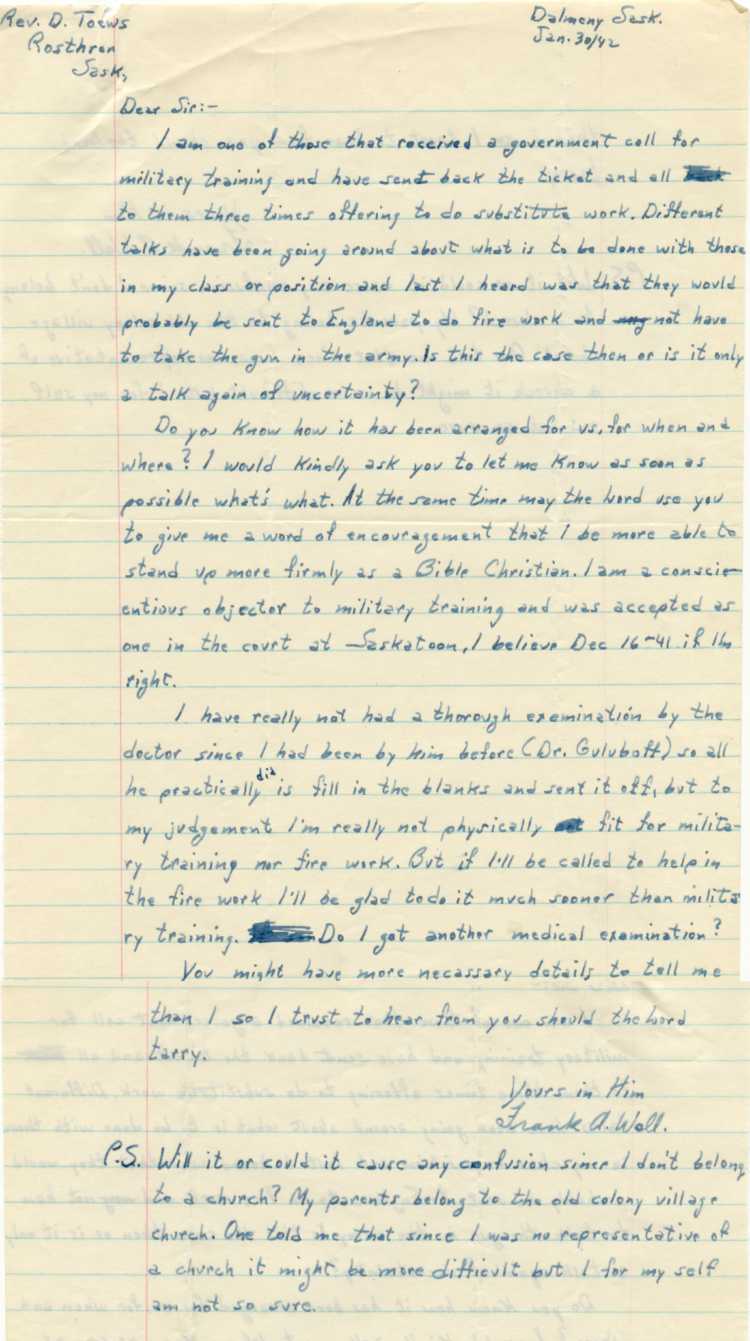 Rev. D. Toews
Rosthren
Sask,
Dalmeny Sask.
Jan. 30/42
Dear Sir:-
I am one of those that received a government call for
military training and have send back the ticket and all
to them three times offering to do substitute work. Different
talks have been going around about what is to be done with those
in my class or position and last I heard was that they would
probably be sent to England to do fire work and not have
to take the gun in the army. Is this the case then or is it only
a talk again of uncertainty?
Do you know how it has been arranged for us, for when and
where? I would kindly ask you to let me know as soon as
possible what's what. At the same time may the Lord use you
to give me a word of encouragement that I be more able to
stand up more firmly as a Bible Christian. I am a conscie-
entious objector to military training and was accepted as
one in the court at Saskatoon, I believe Dec 16-41 if Im
right.
I have really not had a thorough examination by the
doctor since I had been by him before (Dr. Guluboff) so all
he practically did is fill in the blanks and sent it off, but to
my judgement I'm really not physically fit for milita-
ry training nor fire work. But if I'll be called to help in
the fire work I'll be glad to do it much sooner than milita
ry training. Do I get another medical examination?
You might have more necassary details to tell me
than I so I trust to hear from you should the Lord
tarry.
Yours in Him
Frank A. Wall.
P.S. Will it or could it cause any confusion since I don't belong
to a church? My parents belong to the old colony village
church. One told me that since I was no representative of
a church it might be more difficult but I for my self
am not so sure.